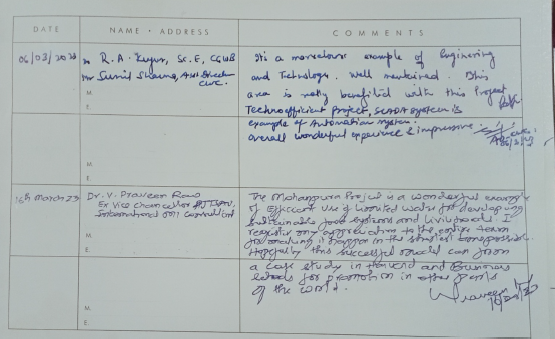 DATE NAME • ADDRESS COMMENTS
06/03/2023 R. A. Sc. E, CGWB
Sunil Sharma, Asst Director
CWC.
It's a marvelous example of Engineering
and Technology. Well mentained. This
area is really benefitted with this Project
Technoefficient Project, SCADA System is
example of Automation system.
overall wonderful experience & impressive.
M.
E.
M.
E.
16th March 23 Dr. V. Praveen Rao
Ex Vice Chancellor
International Consultant
The Mohanpura Project is a wonderful example
of Efficient Use of limited water for developing
sustainable food systems and livelihoods. I
register my appreciation to the entire team
for making it happen in the shortest
Hopefully this successful model can form
a case study in Harvard and Business
Schools for promotion in other parts
of the world.
M.
E.
Praveen
M.
E.